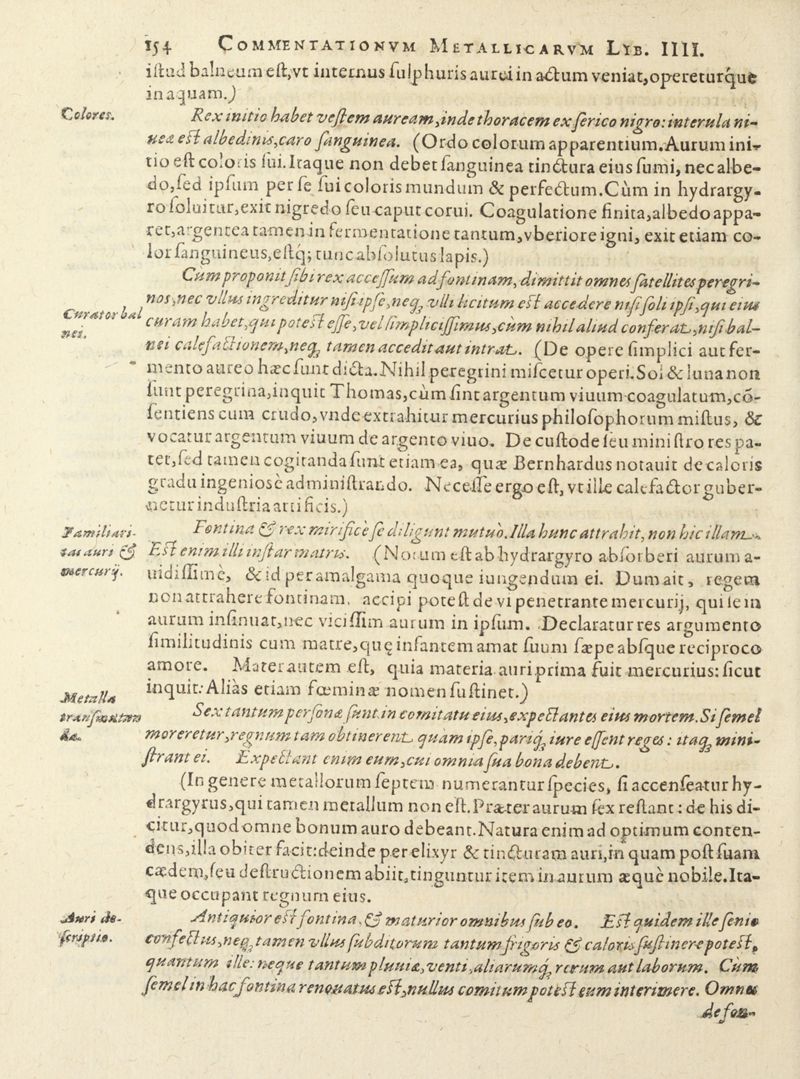 154 COMMENTATIONVM METALLICARVM LIB. IIII.
istud balneum est, vt internus sulphuris aurei in actum veniat, opereturque
in aquam.)
Colores.
Rex initio habet vestem auream, inde thoracem ex serico nigro: interula ni-
ueæ est albedinis, caro sanguinea. (Ordo colorum apparentium. Aurum ini-
tio est coloris sui. Itaque non debet sanguinea tinctura eius fumi, nec albe-
do, sed ipsum per se sui coloris mundum & perfectum. Cùm in hydrargy-
ro soluitur, exit nigredo seu caput corui. Coagulatione finita, albedo appa-
ret, argentea tamen in fermentatione tantum, vberiore igni, exit etiam co-
lor sanguineus, estq; tunc absolutus lapis.)
Cum proponit sibi rex accessum ad fontinam, dimittit omnes satellites peregri-
nos, nec vllus ingreditur nisi ipse, neq; vlli licitum est accedere nisi soli ipsi, qui eius
Curator bal
nei.
curam habet, qui potest esse, vel simplicissimus, cùm nihil aliud conferat, nisi bal-
nei calefactionem, neq; tamen accedit aut intrat. (De opere simplici aut fer-
mento aureo hæc sunt dicta. Nihil peregrini miscetur operi. Sol & luna non
sunt peregrina, inquit Thomas, cùm sint argentum viuum coagulatum, cõ-
sentiens cum crudo, vnde extrahitur mercurius philosophorum mistus, &
vocatur argentum viuum de argento viuo. De custode seu ministro res pa-
tet, sed tamen cogitanda sunt etiam ea, quæ Bernhardus notauit de caloris
gradu ingeniosè administrando. Necesse ergo est, vt ille calefactor guber-
netur industria artificis.)
Familiari-
tas auri &
mercurij.
Fontina & rex mirificè se diligunt mutuò. Illa hunc attrahit, non hic illam.
Est enim illi instar matris. (Notum est ab hydrargyro absorberi aurum a-
uidissimè, & id per amalgama quoque iungendum ei. Dum ait, regem
non attrahere fontinam, accipi potest de vi penetrante mercurij, qui se in
aurum insinuat, nec vicissim aurum in ipsum. Declaratur res argumento
similitudinis cum matre, quę infantem amat suum sæpe absque reciproco
amore. Mater autem est, quia materia auri prima fuit mercurius: sicut
inquit: Aliàs etiam fœminæ nomen sustinet.)
Metalla
transmutan
da.
Sex tantum personæ sunt in comitatu eius, expectantes eius mortem. Si semel
moreretur, regnum tam obtinerent quàm ipse, pariq; iure essent reges: itaq; mini-
strant ei. Expectant enim eum, cui omnia sua bona debent.
(In genere metallorum septem numerantur species, si accenseatur hy-
drargyrus, qui tamen metallum non est. Præter aurum sex restant: de his di-
citur, quod omne bonum auro debeant. Natura enim ad optimum conten-
dens, illa obiter facit: deinde per elixyr & tincturam auri, in quam post suam
cædem, seu destructionem abiit, tinguntur item in aurum æquè nobile. Ita-
que occupant regnum eius.
Auri de-
scriptio.
Antiquior est fontina, & maturior omnibus sub eo. Est quidem ille senio
confectus, neq; tamen vllus subditorum tantum frigoris & caloris sustinere potest,
quantum ille: neque tantum pluuiæ, venti, aliarumq; rerum aut laborum. Cùm
semel in hac fontina renouatus est, nullus comitum potest eum interimere. Omnes
de fon-